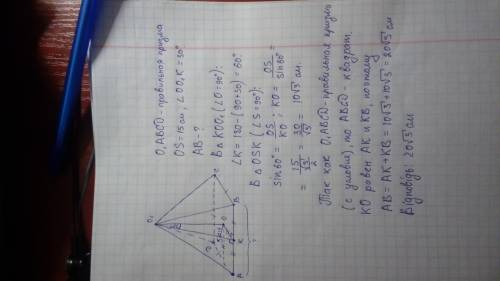 O₁ABCD - правильная призма
OS = 15 см, ∠OO₁K = 30°
AB - ?
В ΔKOO₁ (∠O = 90°):
∠K = 180 - (90+30) = 60°
В ΔOSK (∠S = 90°):
sin60° = OS/KO ; KO = OS/sin60° =
= 15/(√3/2) = 30/√3 = 10√3 см.
Так как O₁ABCD - правильная призма
(с условия), то ABCD - квадрат.
KO равен AK и KB, поэтому
AB = AK + KB = 10√3 + 10√3 = 20√3 см
Відповідь: 20√3 см
O₁
C
B
O
K
A